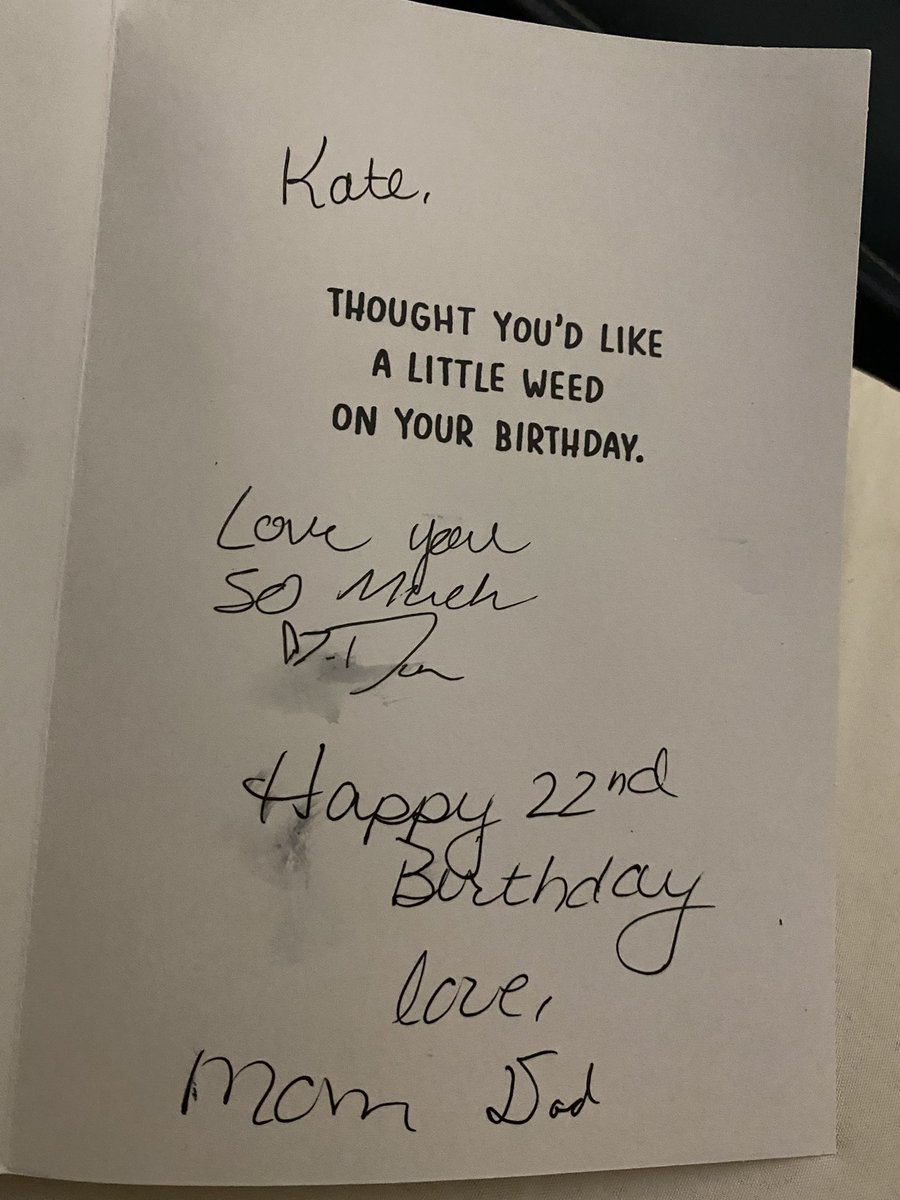 Kate,
THOUGHT YOU'D LIKE
A LITTLE WEED
ON YOUR BIRTHDAY.
Love you
So Much
Happy 22nd
Birthday
love,
Mom Dad